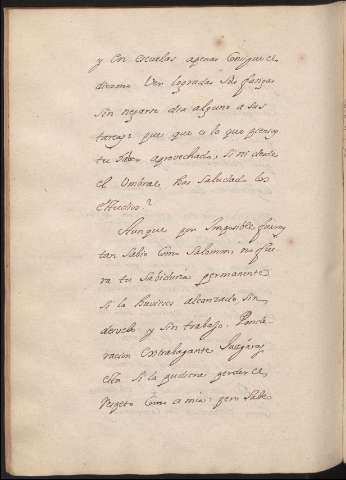 y en escuelas agenas consigue el
diezmo ver logradas sus fatigas
sin negarse dia alguno a sus
tareas: pues que es lo que piensas
tu saber aprovechado, si ni desde
el Umbral, has saludado los
estudios?
Aunque por Imposible fueras
tan Sabio como Salomon, no fue
ra tu Sabiduria permanente
si la huvieses alcanzado sin
desvelo y sin trabajo. Ponde
racion extrabagante Juzgaras
esta si la pudiera perder el
respeto como a mia: pero sabe